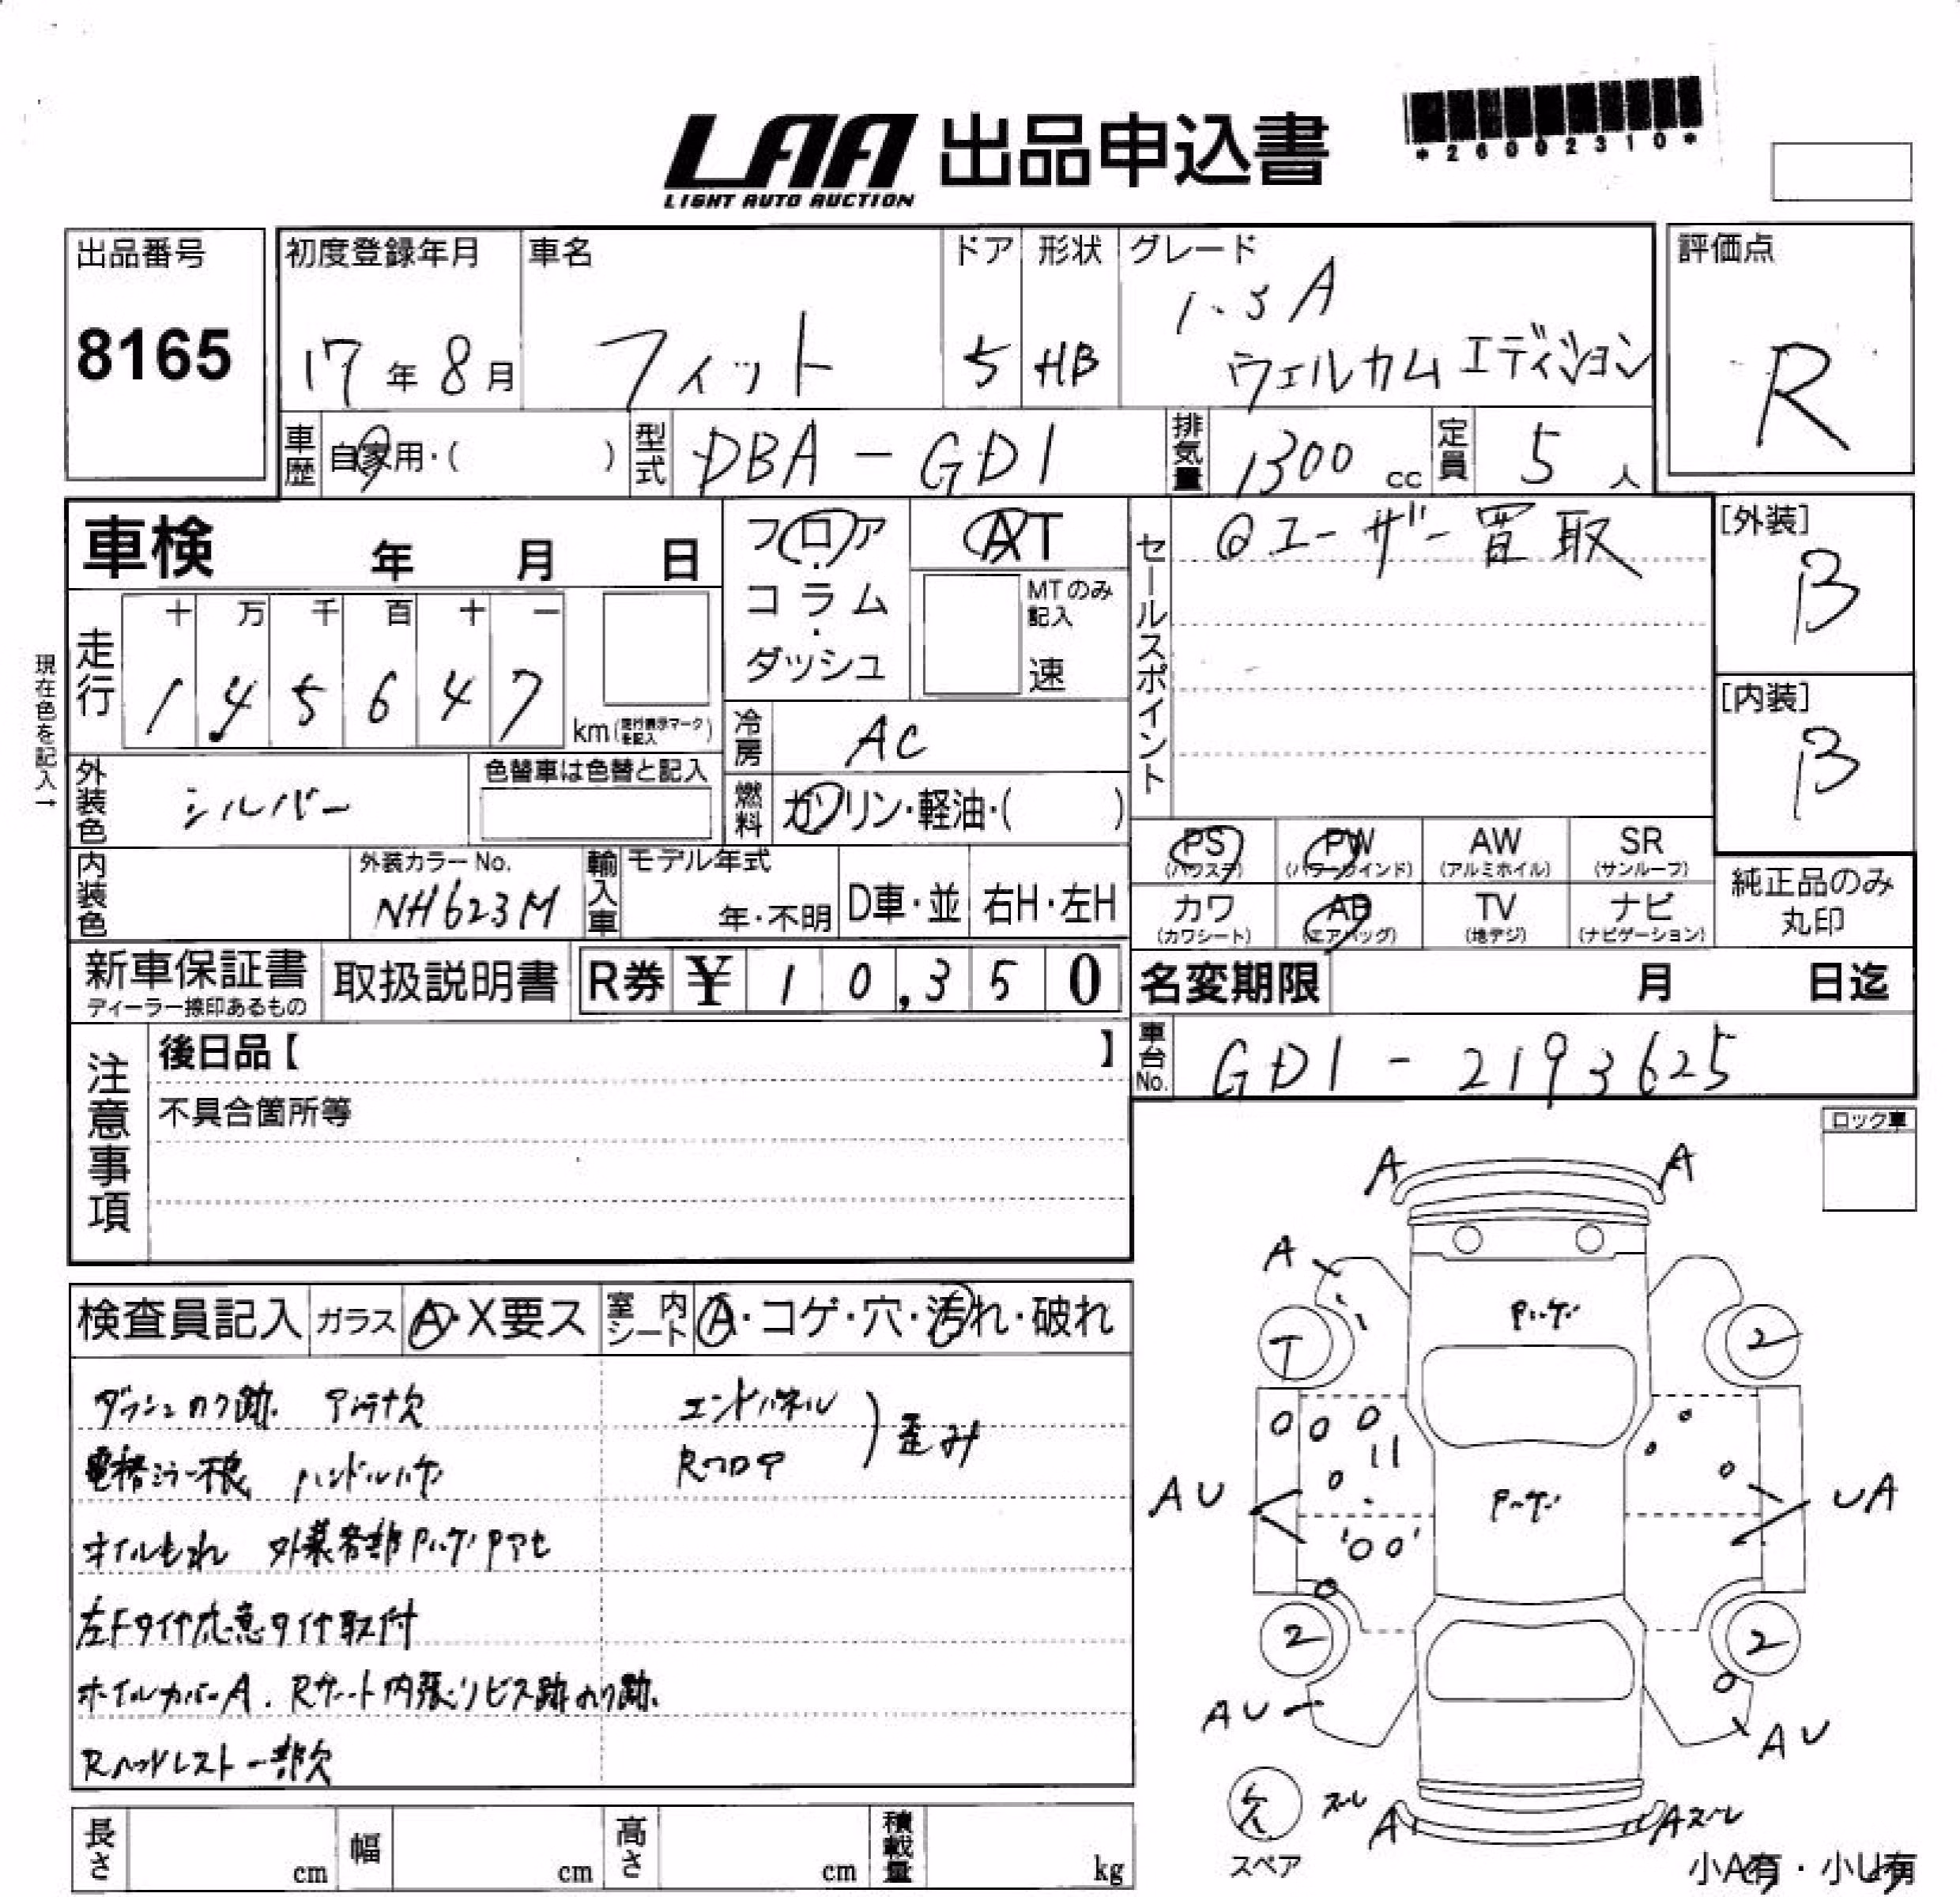 LAA 出品申込書
LIGHT AUTO AUCTION
*26002310*
出品番号
8165
初度登録年月
17年8月
車名
フィット
ドア
5
形状
HB
グレード
1.3A
ウェルカムエディション
評価点
R
車歴
自家用・( )
型式
DBA-GD1
排気量
1300 cc
定員
5人
車検 年 月 日
フロア・コラム・ダッシュ
AT
MTのみ記入
速
セールスポイント
@ユーザー買取
[外装]
B
[内装]
B
現在色を記入→
走行
十 万 千 百 十 一
1 4 5 6 4 7
km(走行表示マークを記入)
冷房
AC
外装色
シルバー
色替車は色替と記入
燃料
ガソリン・軽油・( )
PS
PW
AW
(アルミホイル)
SR
(サンルーフ)
カワ
(カワシート)
AB
(エアバッグ)
TV
(地デジ)
ナビ
(ナビゲーション)
純正品のみ
丸印
内装色
外装カラーNo.
NH623M
輸入車
モデル年式
年・不明
D車・並
右H・左H
新車保証書
ディーラー捺印あるもの
取扱説明書
R券 ¥ 10,350
名変期限 月 日迄
車台No.
GD1-2193625
注意事項
後日品【 】
不具合箇所等
ロック車
検査員記入
ガラス
A・X要ス
室内シート
A・コゲ・穴・汚れ・破れ
ダッシュのり跡. アンテナ欠
エンドパネル
Rフロア
歪み
電格ミラー不良 ハンドルハゲ
オイルもれ
左Fタイヤ応急タイヤ取付
ホイルカバーA. Rゲート内張りビス跡のり跡.
Rヘッドレスト一部欠
A A
A
T 2
AU UA
2 2
AU AU
欠
スペア
スレ A Aスレ
小A有・小U有
長さ cm
幅 cm
高さ cm
積載量 kg